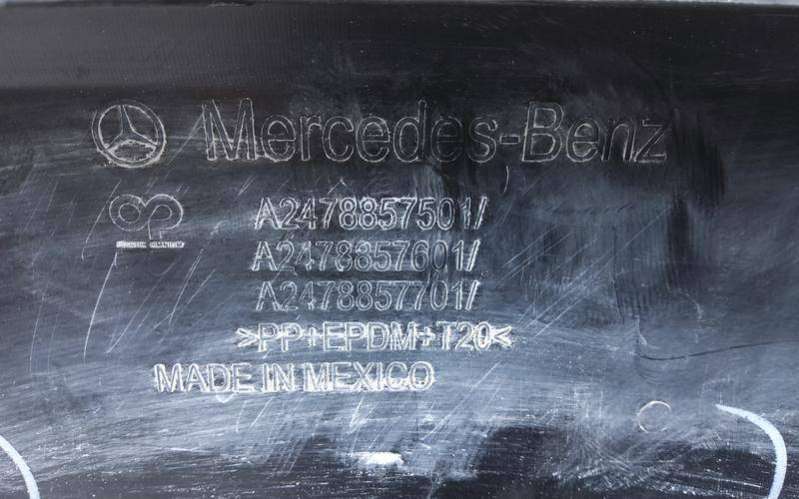 Mercedes-Benz
A2478857501/
A2478857601/
A2478857701/
>PP+EPDM+T20<
MADE IN MEXICO